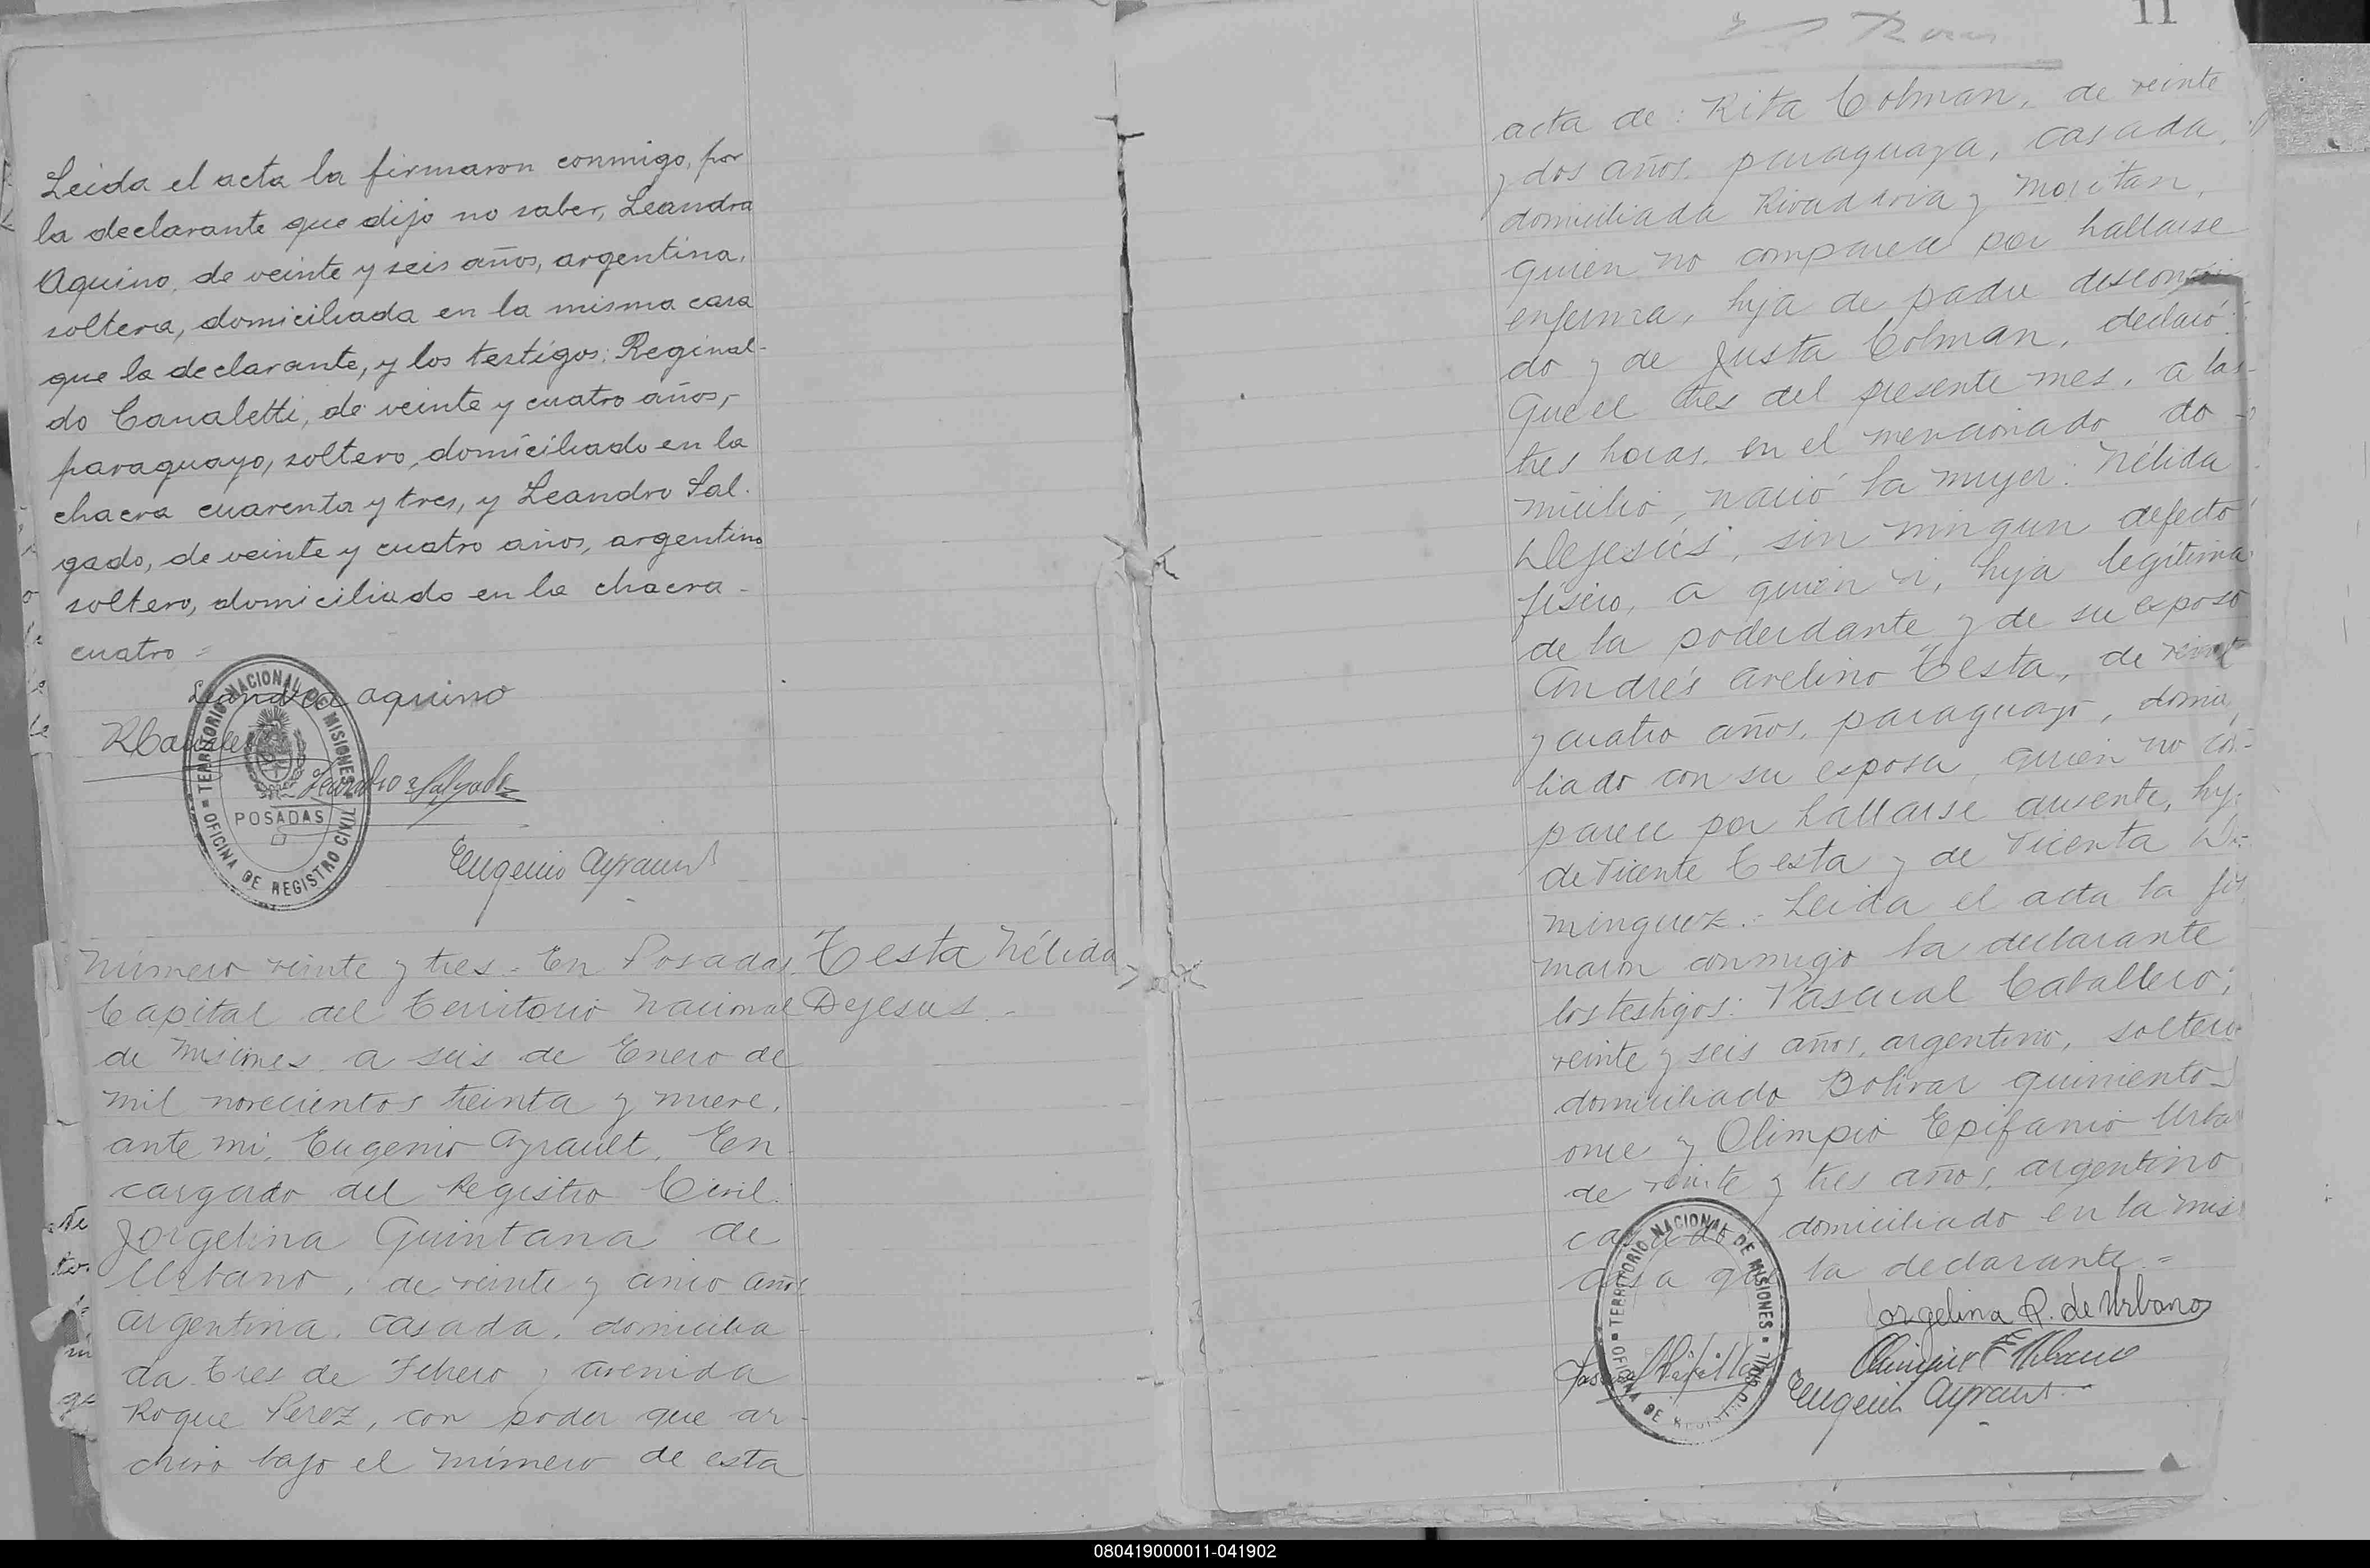 Leida el acta la firmaron conmigo, por
la declarante que dijo no saber, Leandra
Aquino, de veinte y seis años, argentina,
soltera, domiciliada en la misma casa
que la declarante, y los testigos: Reginal-
do Canaletti, de veinte y cuatro años,
paraguayo, soltero, domiciliado en la
chacra cuarenta y tres, y Leandro Sal-
gado, de veinte y cuatro años, argentino
soltero, domiciliado en la chacra
cuatro =
Leandra aquino
Leandro Salgado
TERRITORIO NACIONAL DE MISIONES
POSADAS
OFICINA DE REGISTRO CIVIL
Eugenio Ayrault
Número veinte y tres. En Posadas
Capital del Territorio Nacional
de Misiones a seis de Enero de
mil novecientos treinta y nueve,
ante mi, Eugenio Ayrault, En
cargado del Registro Civil
Jorgelina Quintana de
Urbano, de veinte y cinco años
argentina, casada, domicilia
da Tres de Febrero y avenida
Roque Perez, con poder que ar-
chivo bajo el número de esta
Testa Nélida
Dejesus.-
11
acta de: Rita Colman, de veinte
y dos años, paraguaya, casada,
domiciliada Rivadavia y
quien no comparece por hallarse
enferma, hija de padre desconoci
do y de Justa Colman, declaró:
Que el tres del presente mes, a las
tres horas, en el mencionado do
micilio, nació la mujer: Nélida
Dejesús, sin ningun defecto
físico, a quien vi, hija legítima
de la poderdante y de su esposo
Andrés Avelino Testa, de veinte
y cuatro años, paraguayo, domici
liado con su esposa, quien no com-
parece por hallarse ausente, hijo
de Vicente Testa y de Vicenta Do-
minguez.- Leida el acta la fir
maron conmigo la declarante
los testigos: Pascual Caballero,
veinte y seis años, argentino, soltero
domiciliado Bolivar quinientos
once y Olimpio Epifanio Urbano
de veinte y tres años, argentino
casado, domiciliado en la mis
casa que la declarante =
Jorgelina Q. de Urbano
Olimpio E Urbano
Eugenio Ayrault
TERRITORIO NACIONAL DE MISIONES
OFICINA DE REGISTRO CIVIL
080419000011-041902